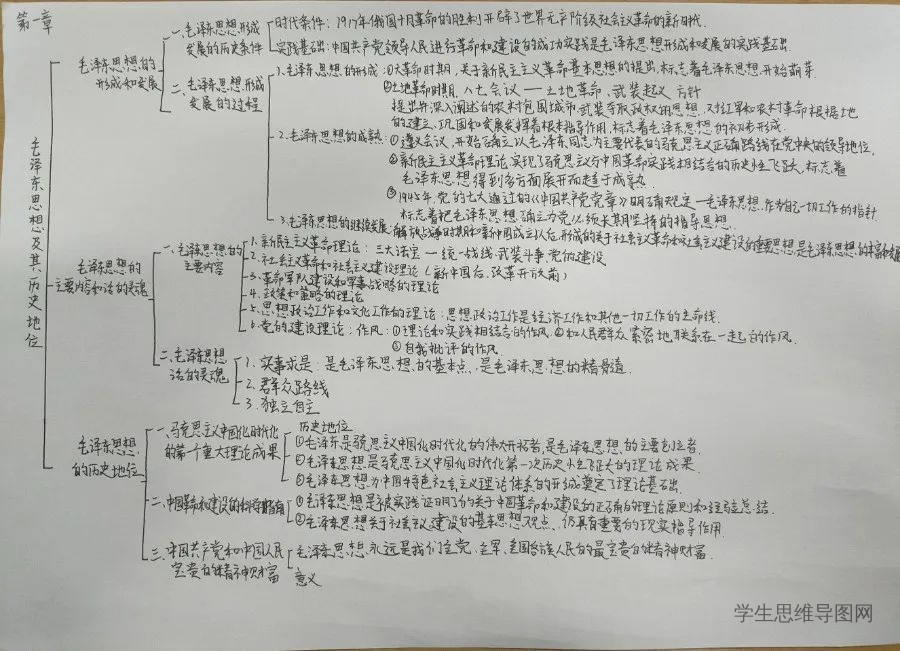 第一章
毛泽东思想及其历史地位
毛泽东思想的
形成和发展
一、毛泽东思想形成
发展的历史条件
时代条件：1917年俄国十月革命的胜利开辟了世界无产阶级社会主义革命的新时代.
实践基础：中国共产党领导人民进行革命和建设的成功实践是毛泽东思想形成和发展的实践基础.
二、毛泽东思想形成
发展的过程
1.毛泽东思想的形成：①大革命时期，关于新民主主义革命基本思想的提出，标志着毛泽东思想开始萌芽.
②土地革命时期，八七会议——土地革命、武装起义 方针
提出并深入阐述的农村包围城市、武装夺取政权的思想，对红军和农村革命根据地
的建立、巩固和发展发挥着根本指导作用，标志着毛泽东思想的初步形成.
2.毛泽东思想的成熟：①遵义会议，开始确立以毛泽东同志为主要代表的马克思主义正确路线在党中央的领导地位.
②新民主主义革命理论，实现了马克思主义与中国革命实践相结合的历史性飞跃，标志着
毛泽东思想得到多方面展开而趋于成熟.
③1945年，党的七大通过的《中国共产党党章》明确规定——毛泽东思想，作为自己一切工作的指针
标志着把毛泽东思想确立为党必须长期坚持的指导思想.
3.毛泽东思想的继续发展：解放战争时期和新中国成立以后，形成的关于社会主义革命和社会主义建设的重要思想，是毛泽东思想的丰富和发展
毛泽东思想的
主要内容和活的灵魂
一、毛泽东思想的
主要内容
1.新民主主义革命理论：三大法宝—统一战线、武装斗争、党的建设
2.社会主义革命和社会主义建设理论（新中国后，改革开放前）
3.革命军队建设和军事战略的理论
4.政策和策略的理论
5.思想政治工作和文化工作的理论：思想政治工作是经济工作和其他一切工作的生命线.
6.党的建设理论：作风：①理论和实践相结合的作风 ②和人民群众紧密地联系在一起的作风
③自我批评的作风
二、毛泽东思想
活的灵魂
1.实事求是：是毛泽东思想的基本点，是毛泽东思想的精髓
2.群众路线
3.独立自主
毛泽东思想
的历史地位
一、马克思主义中国化时代化
的第一个重大理论成果
历史地位
①毛泽东是马克思主义中国化时代化的伟大开拓者，是毛泽东思想的主要创立者.
②毛泽东思想是马克思主义中国化时代化第一次历史性飞跃的理论成果.
③毛泽东思想为中国特色社会主义理论体系的形成奠定了理论基础.
二、中国革命和建设的科学指南
①毛泽东思想是被实践证明了的关于中国革命和建设的正确的理论原则和经验总结.
②毛泽东思想关于社会主义建设的基本思想观点，仍具有重要的现实指导作用.
三、中国共产党和中国人民
宝贵的精神财富
毛泽东思想永远是我们全党、全军、全国各族人民的最宝贵的精神财富.
意义
学生思维导图网